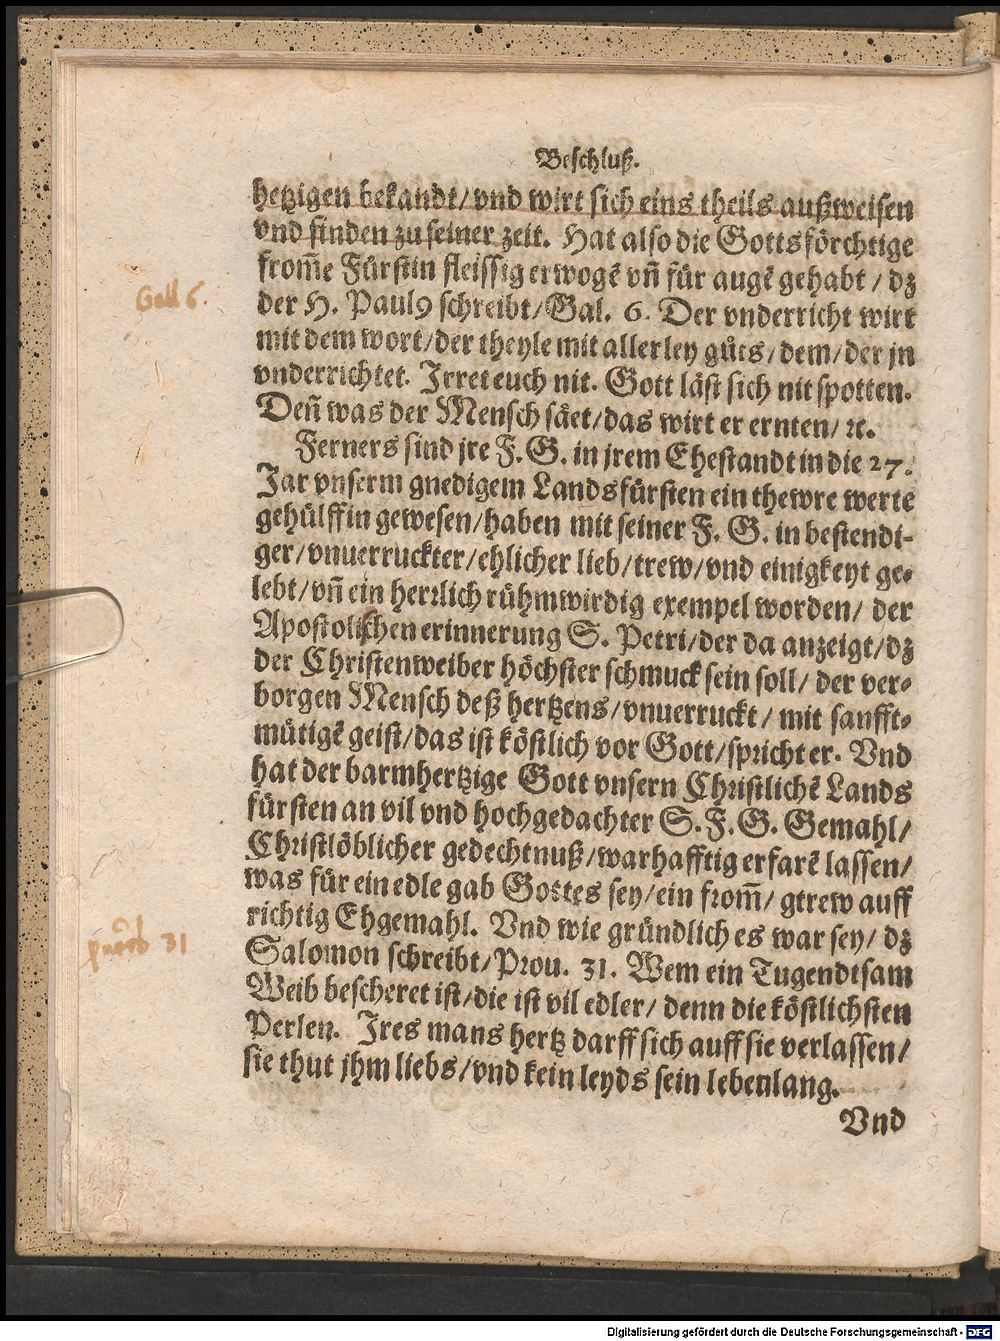 Beschluß.
hetzigen bekandt/ vnd wirt sich eins theils außweisen
vnd finden zu seiner zeit. Hat also die Gottsförchtige
from̃e Fürstin fleissig erwogẽ vñ für augẽ gehabt / dz
der H. Paulꝰ schreibt/ Gal. 6. Der vnderricht wirt
mit dem wort/ der theyle mit allerley gůts/ dem/ der jn
vnderrichtet. Irret euch nit. Gott läst sich nit spotten.
Deñ was der Mensch säet/ das wirt er ernten/ ꝛc.
Ferners sind jre F. G. in jrem Ehestandt in die 27.
Jar vnserm gnedigem Landsfürsten ein thewre werte
gehülffin gewesen/ haben mit seiner F. G. in bestendi-
ger/ vnuerruckter/ ehlicher lieb/ trew/ vnd einigkeyt ge-
lebt/ vñ ein herrlich rühmwirdig exempel worden/ der
Apostolischen erinnerung S. Petri/ der da anzeigt/ dz
der Christenweiber höchster schmuck sein soll/ der ver-
borgen Mensch deß hertzens/ vnuerruckt/ mit sanfft-
mütigẽ geist/ das ist köstlich vor Gott/ spricht er. Vnd
hat der barmhertzige Gott vnsern Christlichẽ Lands
fürsten an vil vnd hochgedachter S. F. G. Gemahl/
Christlöblicher gedechtnuß/ warhafftig erfarẽ lassen/
was für ein edle gab Gottes sey/ ein from̃/ gtrew auff
richtig Ehgemahl. Vnd wie gründlich es war sey/ dz
Salomon schreibt/ Prou. 31. Wem ein Tugendtsam
Weib bescheret ist/ die ist vil edler/ denn die köstlichsten
Perlen. Ires mans hertz darff sich auff sie verlassen/
sie thut jhm liebs/ vnd kein leyds sein lebenlang.
Vnd
Gall 6.
prouerb 31
Digitalisierung gefördert durch die Deutsche Forschungsgemeinschaft - DFG